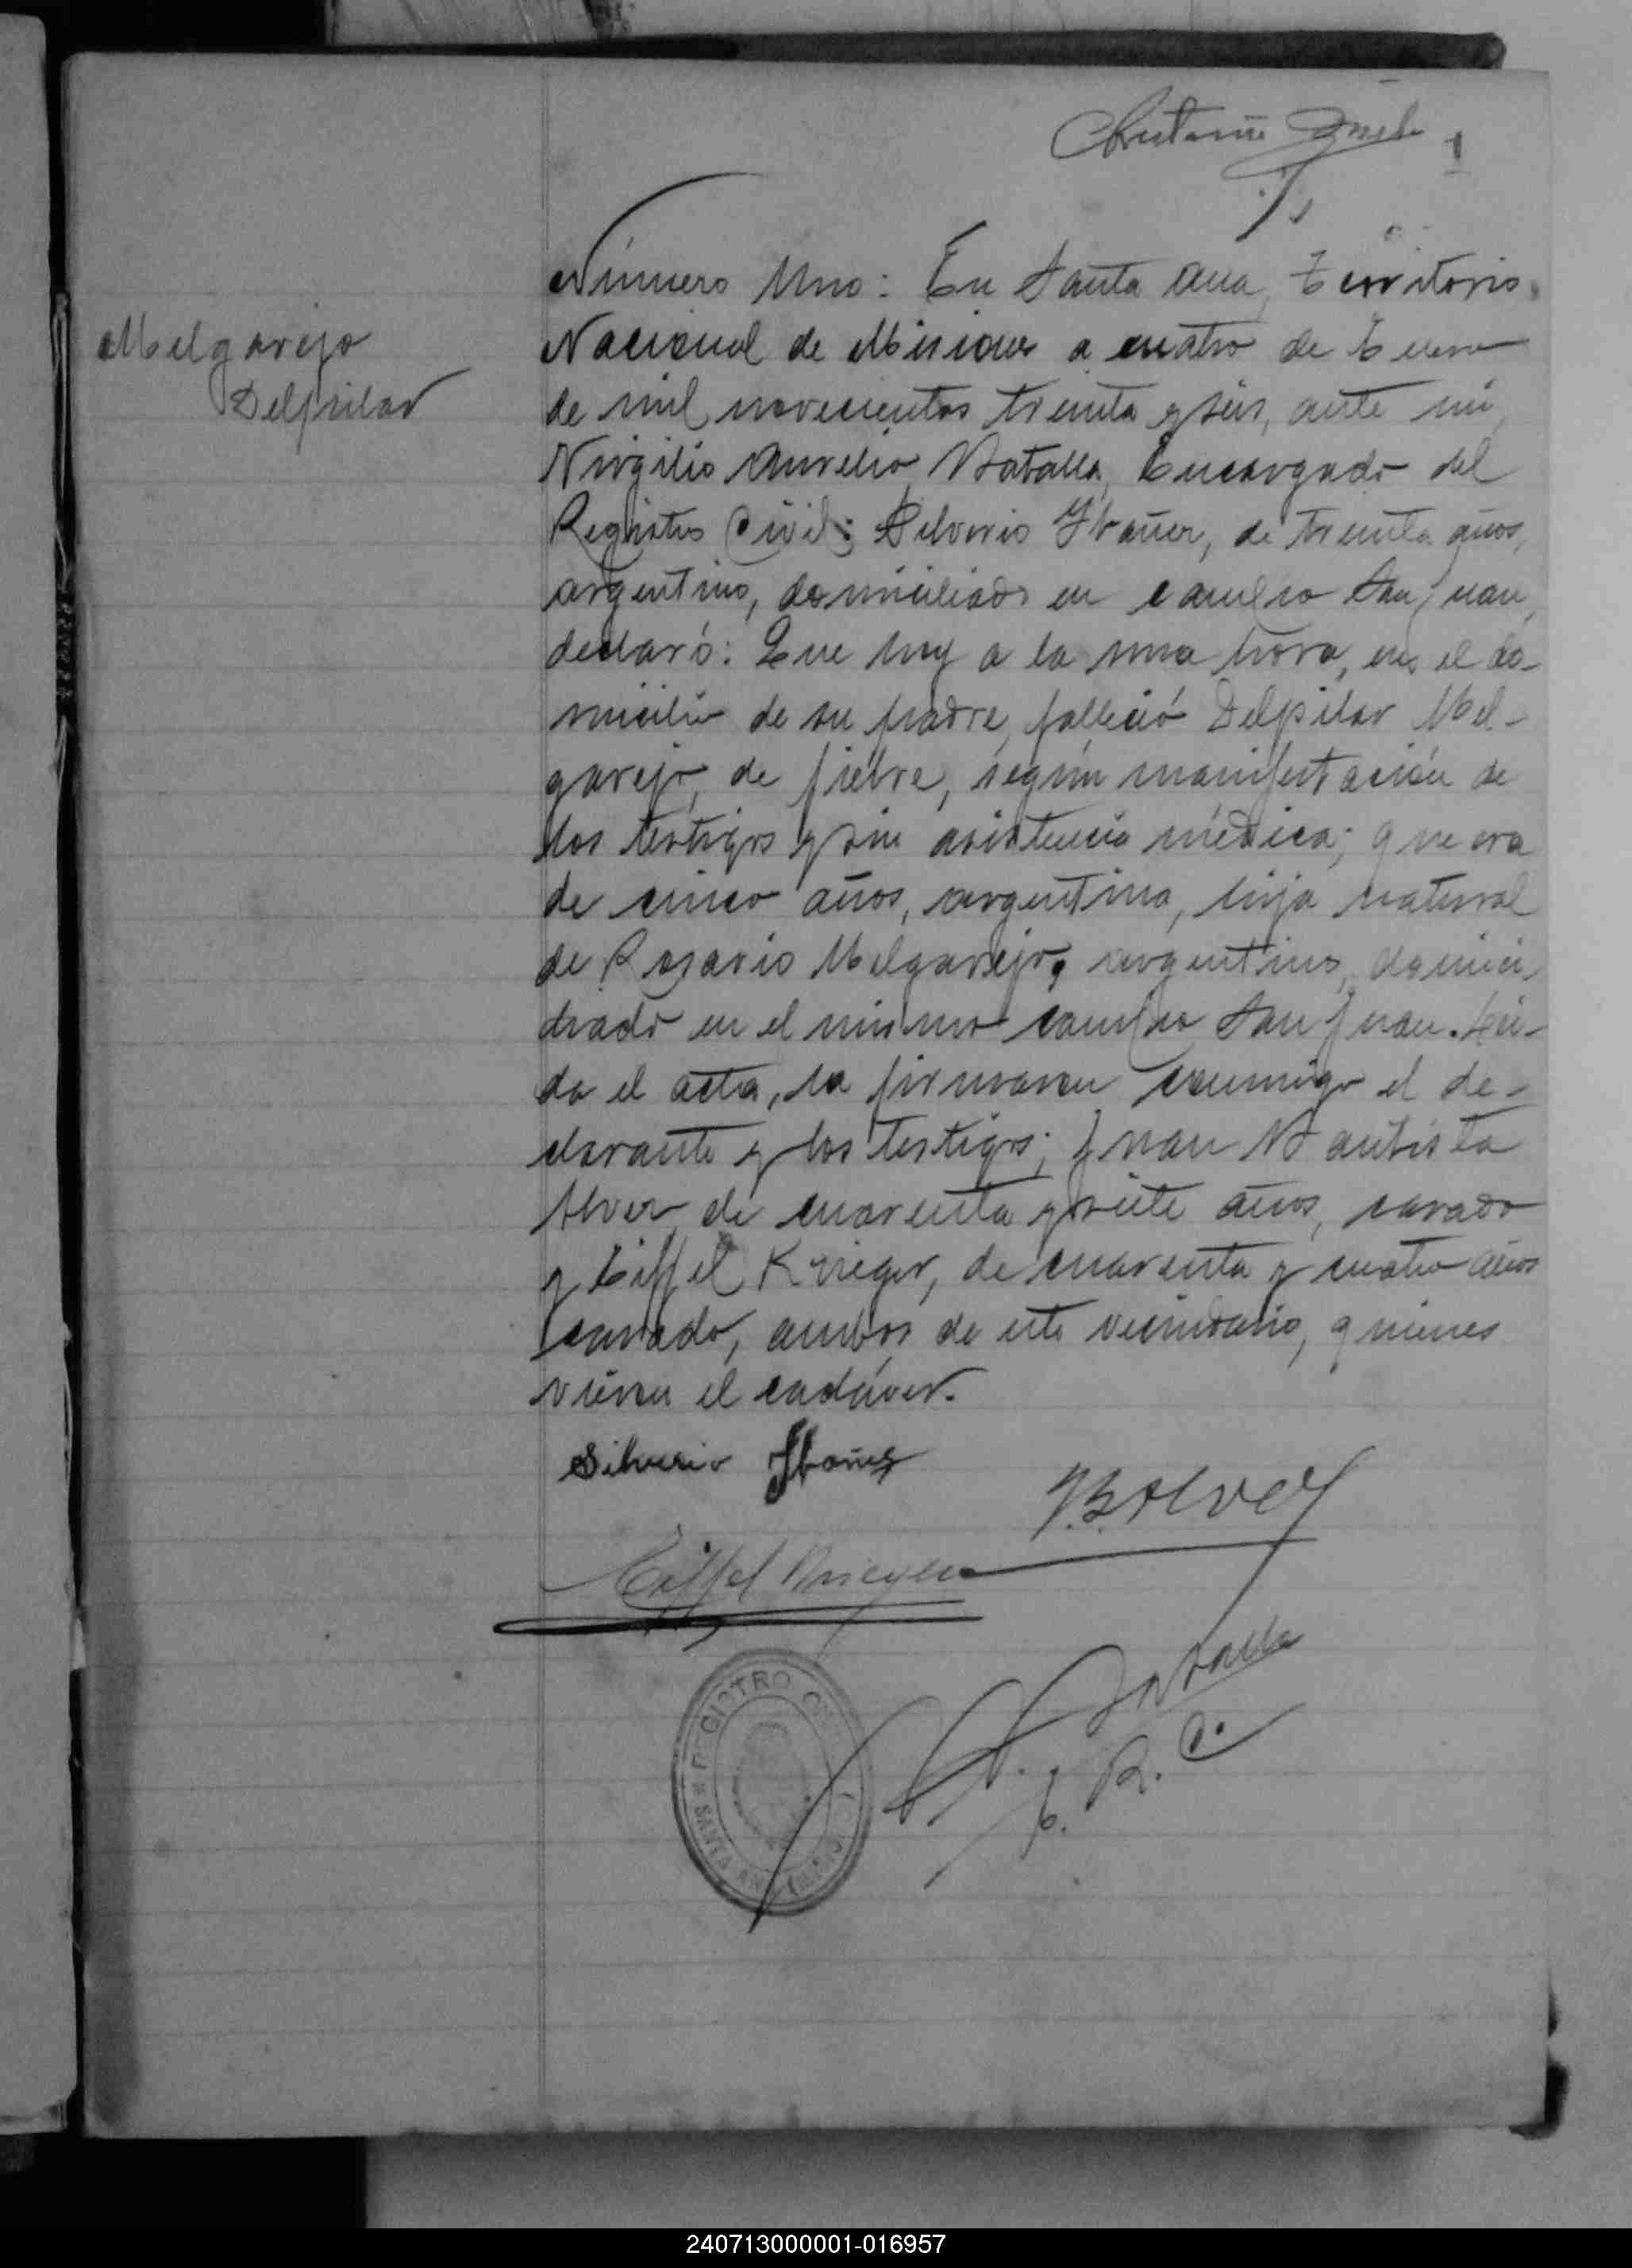 1
Número Uno: En Santa Ana, Territorio
Melgarejo
Delpilar
Nacional de Misiones a cuatro de Enero
de mil novecientos treinta y seis, ante mi,
Virgilio Aurelio Batalla, Encargado del
Registro Civil: Silverio Ibañez, de treinta años,
argentino, domiciliado en campo San Juan,
declaró: Que hoy a la una hora, en el do-
micilio de su padre, falleció Delpilar Mel-
garejo, de fiebre, según manifestación de
los testigos y sin asistencia médica; que era
de cinco años, argentina, hija natural
de Rosario Melgarejo, argentino, domici-
liado en el mismo campo San Juan. Leí-
da el acta, la firmaron conmigo el de-
clarante y los testigos; Juan Bautista
Alvez, de cuarenta y siete años, casado
y Eiffel Krieger, de cuarenta y cuatro años
casado, ambos de este vecindario, quienes
vieron el cadáver.
Silverio Ibañez
J.B. Alvez
Eiffel Krieger
Batalla
E. R. C.
REGISTRO
SANTA ANA
240713000001-016957